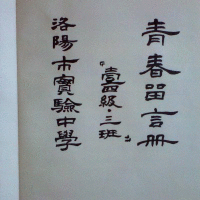 青春留言册
『壹四級·三班』
洛陽市實驗中學